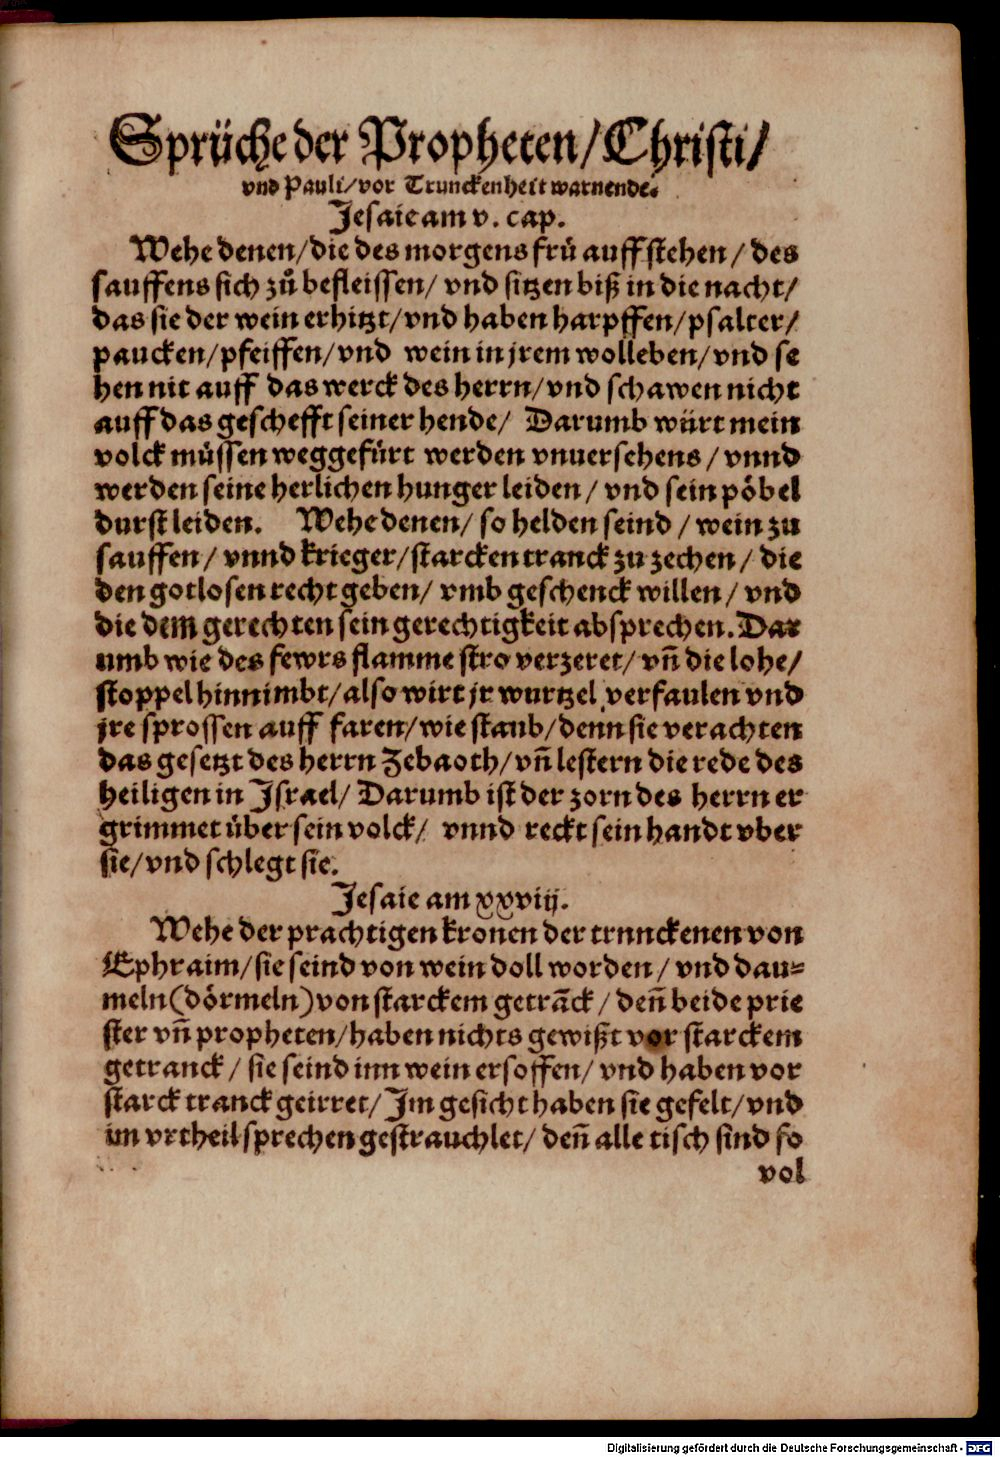 Sprüche der Propheten/Christi/
vnd Pauli/vor Trunckenheit warnende.
Jesaie am v. cap.
Wehe denen/die des morgens frü auffstehen/ des
sauffens sich zů befleissen/ vnd sitzen biß in die nacht/
das sie der wein erhitzt/vnd haben harpffen/psalter/
paucken/pfeiffen/vnd wein in jrem wolleben/vnd se
hen nit auff das werck des herrn/vnd schawen nicht
auff das geschefft seiner hende/ Darumb würt mein
volck müssen weggefürt werden vnuersehens/vnnd
werden seine herlichen hunger leiden/ vnd sein pöbel
durst leiden. Wehe denen/ so helden seind/wein zu
sauffen/ vnnd krieger/starcken tranck zu zechen/ die
den gotlosen recht geben/ vmb geschenck willen/ vnd
die dem gerechten sein gerechtigkeit absprechen. Dar
umb wie des fewrs flamme stro verzeret/vñ die lohe/
stoppel hinnimbt/also wirt jr wurtzel verfaulen vnd
jre sprossen auff faren/wie staub/denn sie verachten
das gesetzt des herrn Zebaoth/vñ lestern die rede des
heiligen in Israel/ Darumb ist der zorn des herrn er
grimmet über sein volck/ vnnd reckt sein handt vber
sie/vnd schlegt sie.
Jesaie am xxviij.
Wehe der prachtigen kronen der trnnckenen von
Ephraim/sie seind von wein doll worden/ vnd dau=
meln(dörmeln)von starckem geträck/ deñ beide prie
ster vñ propheten/haben nichts gewißt vor starckem
getranck/ sie seind inn wein ersoffen/ vnd haben vor
starck tranck geirret/Im gesicht haben sie gefelt/vnd
im vrtheil sprechen gestrauchlet/ deñ alle tisch sind so
vol
Digitalisierung gefördert durch die Deutsche Forschungsgemeinschaft - DFG